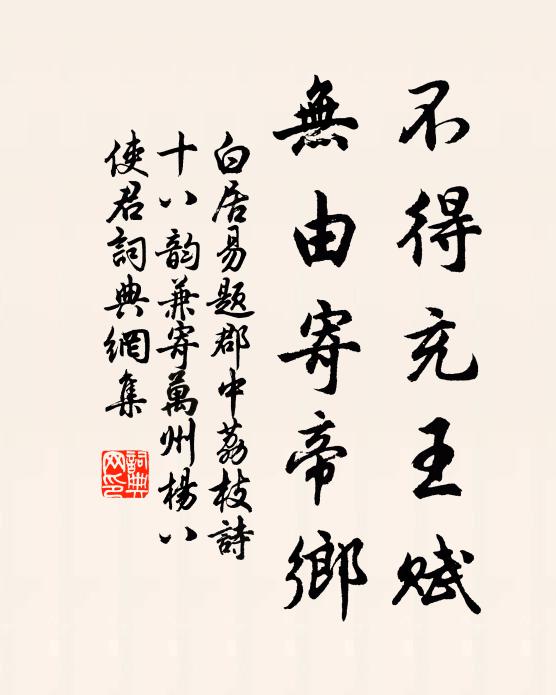 不得充王赋
無由寄帝鄉
白居易题郡中荔枝詩
十八韵兼寄萬州楊八
使君詞典網集
詞典
网印